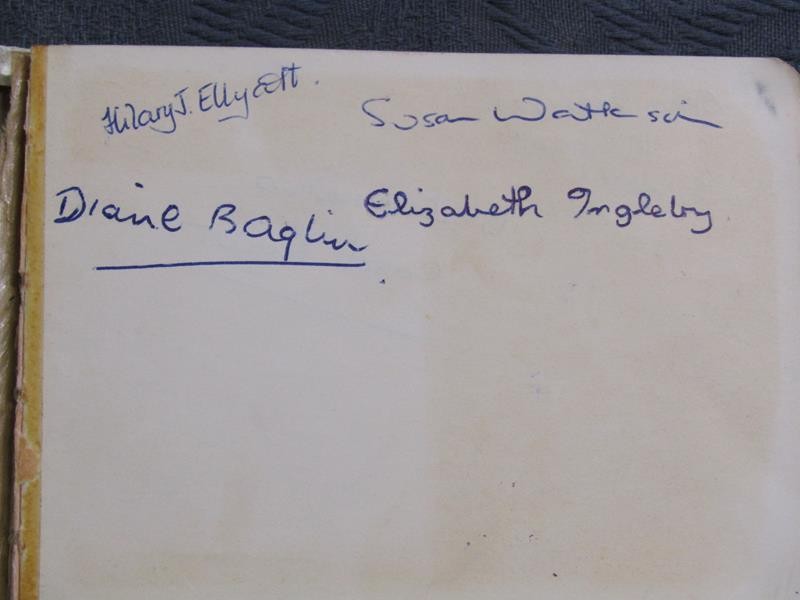 Hilary J. Ellycett.
Susan Watkinson
Diane Baglin
Elizabeth Ingleby